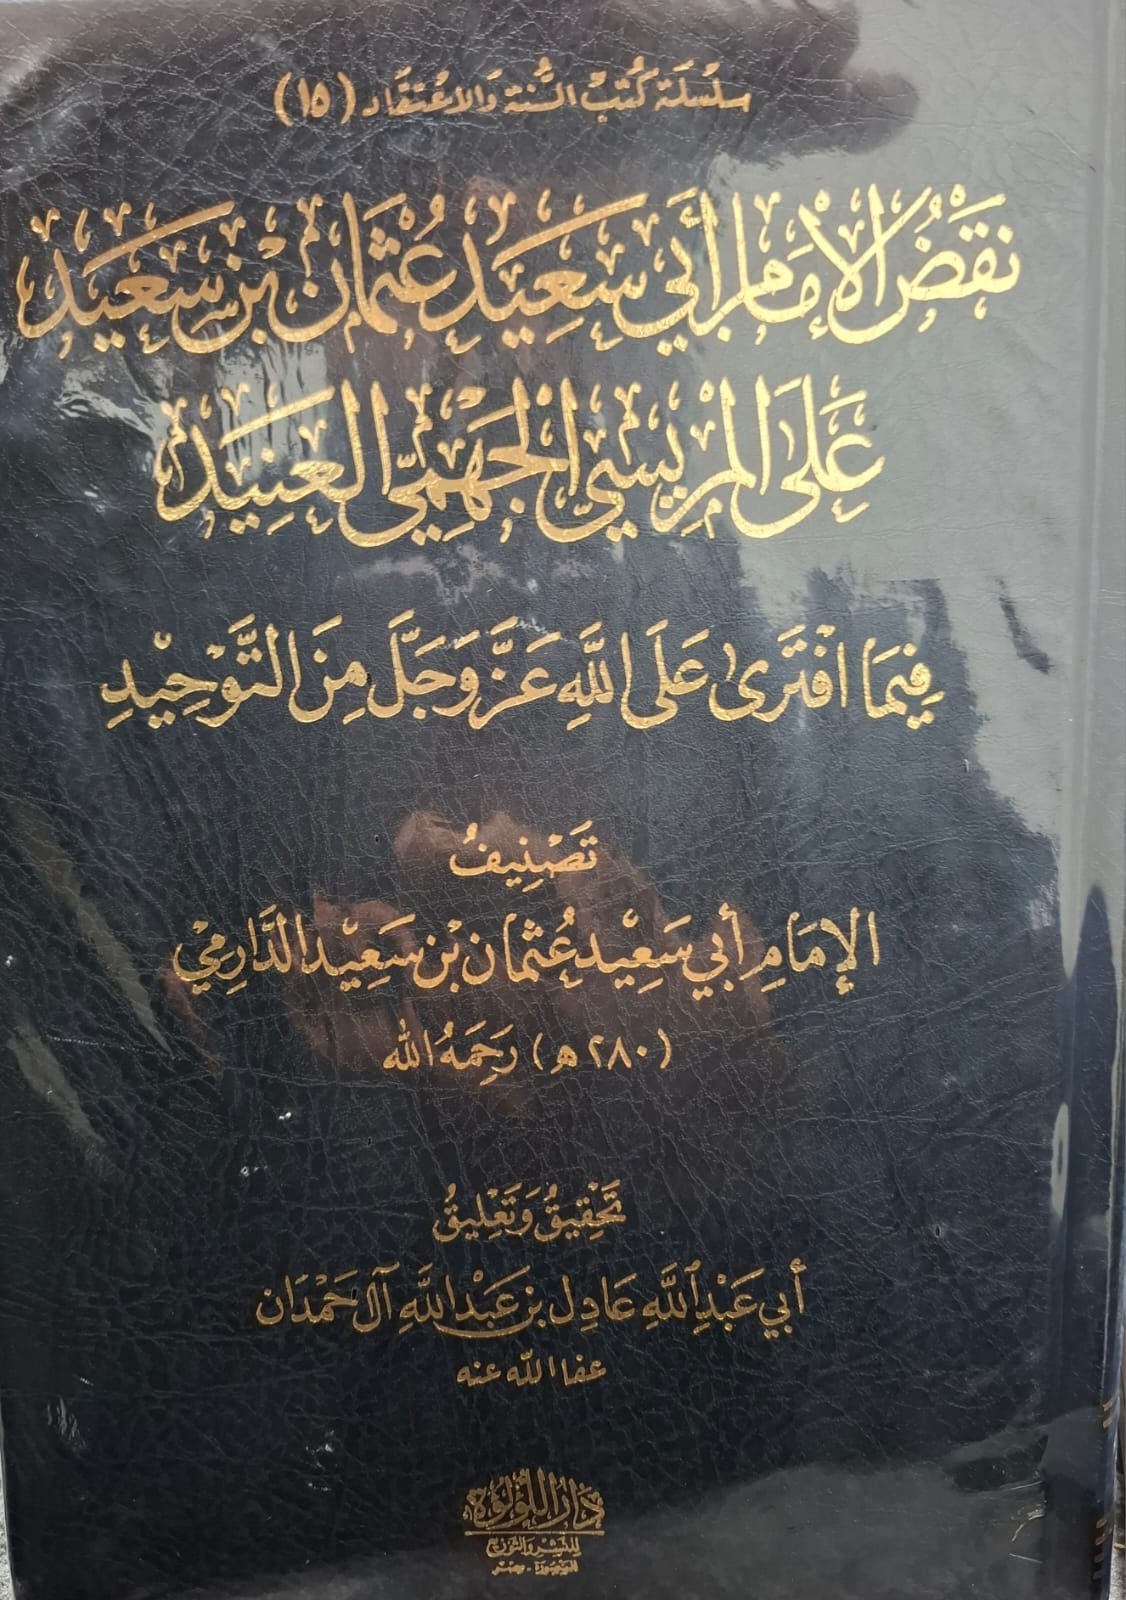 سلسلة كتب السنة والاعتقاد (١٥)
نَقْضُ الإمَامِ أَبي سَعِيَد عُثْمَان بْن سَعِيَد
عَلَى المْرِيسيِّ الْجَهْمِيِّ العَنِيَد
فِيَما افْتَرَى عَلَى اللَّهِ عَزَّ وَجَلَّ مِنَ التَّوْحِيْدِ
تَصْنِيفُ
الإمَامِ أَبي سَعِيْد عُثمان بْن سَعِيْد الدَّارِمْي
(٢٨٠ هـ) رَحِمَهُ الله
تَحْقِيقُ وَتَعْلِيقُ
أَبي عَبْدِ اللَّهِ عَادِل بْن عَبْدِ اللَّهِ آل حَمْدَان
عفا الله عنه
دَارُ اللُؤلُؤَة
للنشر والتوزيع
المنصورة - مصر